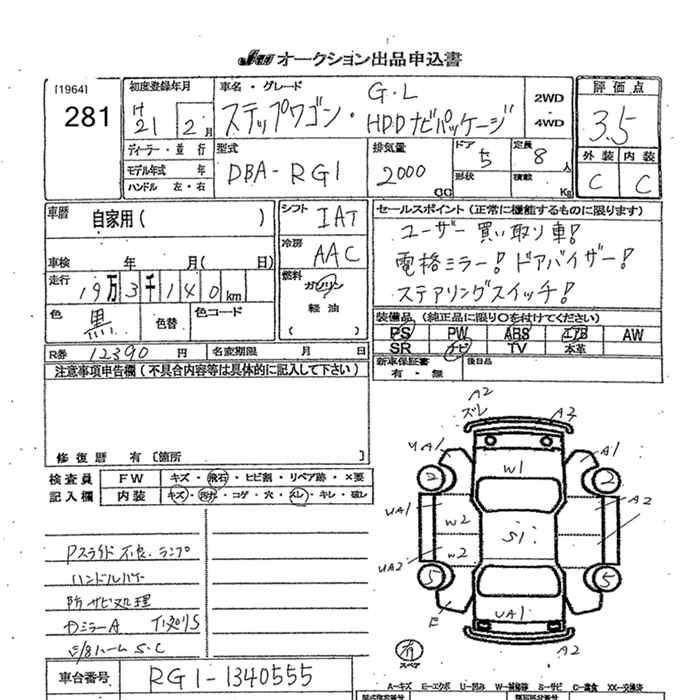 JU オークション出品申込書
[1964]
281
初度登録年月
H 21 2 月
車名・グレード
G・L
ステップワゴン・HDDナビパッケージ
2WD
4WD
評価点
3.5
外装 内装
C C
ディーラー・並行
モデル年式 年
ハンドル 左・右
型式
DBA-RG1
排気量
2000
CC
ドア 5
形状
定員 8 人
積載 Kg
車歴
自家用( )
シフト IAT
冷房 AAC
セールスポイント(正常に機能するものに限ります)
ユーザー買い取り車!
電格ミラー!ドアバイザー!
ステアリングスイッチ!
車検 年 月( 日)
走行
19万3千140km
燃料
ガソリン
軽油
( )
色
黒
色替
色コード
装備品(純正品に限り○を付けてください)
PS PW ABS エアB AW
SR ナビ TV 本革
R券 12390 円
名変期限 月 日
新車保証書
有・無
後日品
注意事項申告欄(不具合内容等は具体的に記入して下さい)
修復歴 有〔箇所 〕
検査員
記入欄
FW キズ・飛石・ヒビ割・リペア跡・×要
内装 キズ・汚れ・コゲ・穴・スレ・キレ・破レ
Pスライド不良、ランプ
ハンドルハゲ
防サビ処理
カミラーA
S・C
車台番号
RG1-1340555
A2
ズレ
A2
UA1
A1
2
2
W1
UA1
A2
W2
S1
UA2
W2
5
5
E
UA1
A2
スペア
A-キズ E-エクボ U-凹み W-補修跡 S-サビ C-腐食 XX-交換済